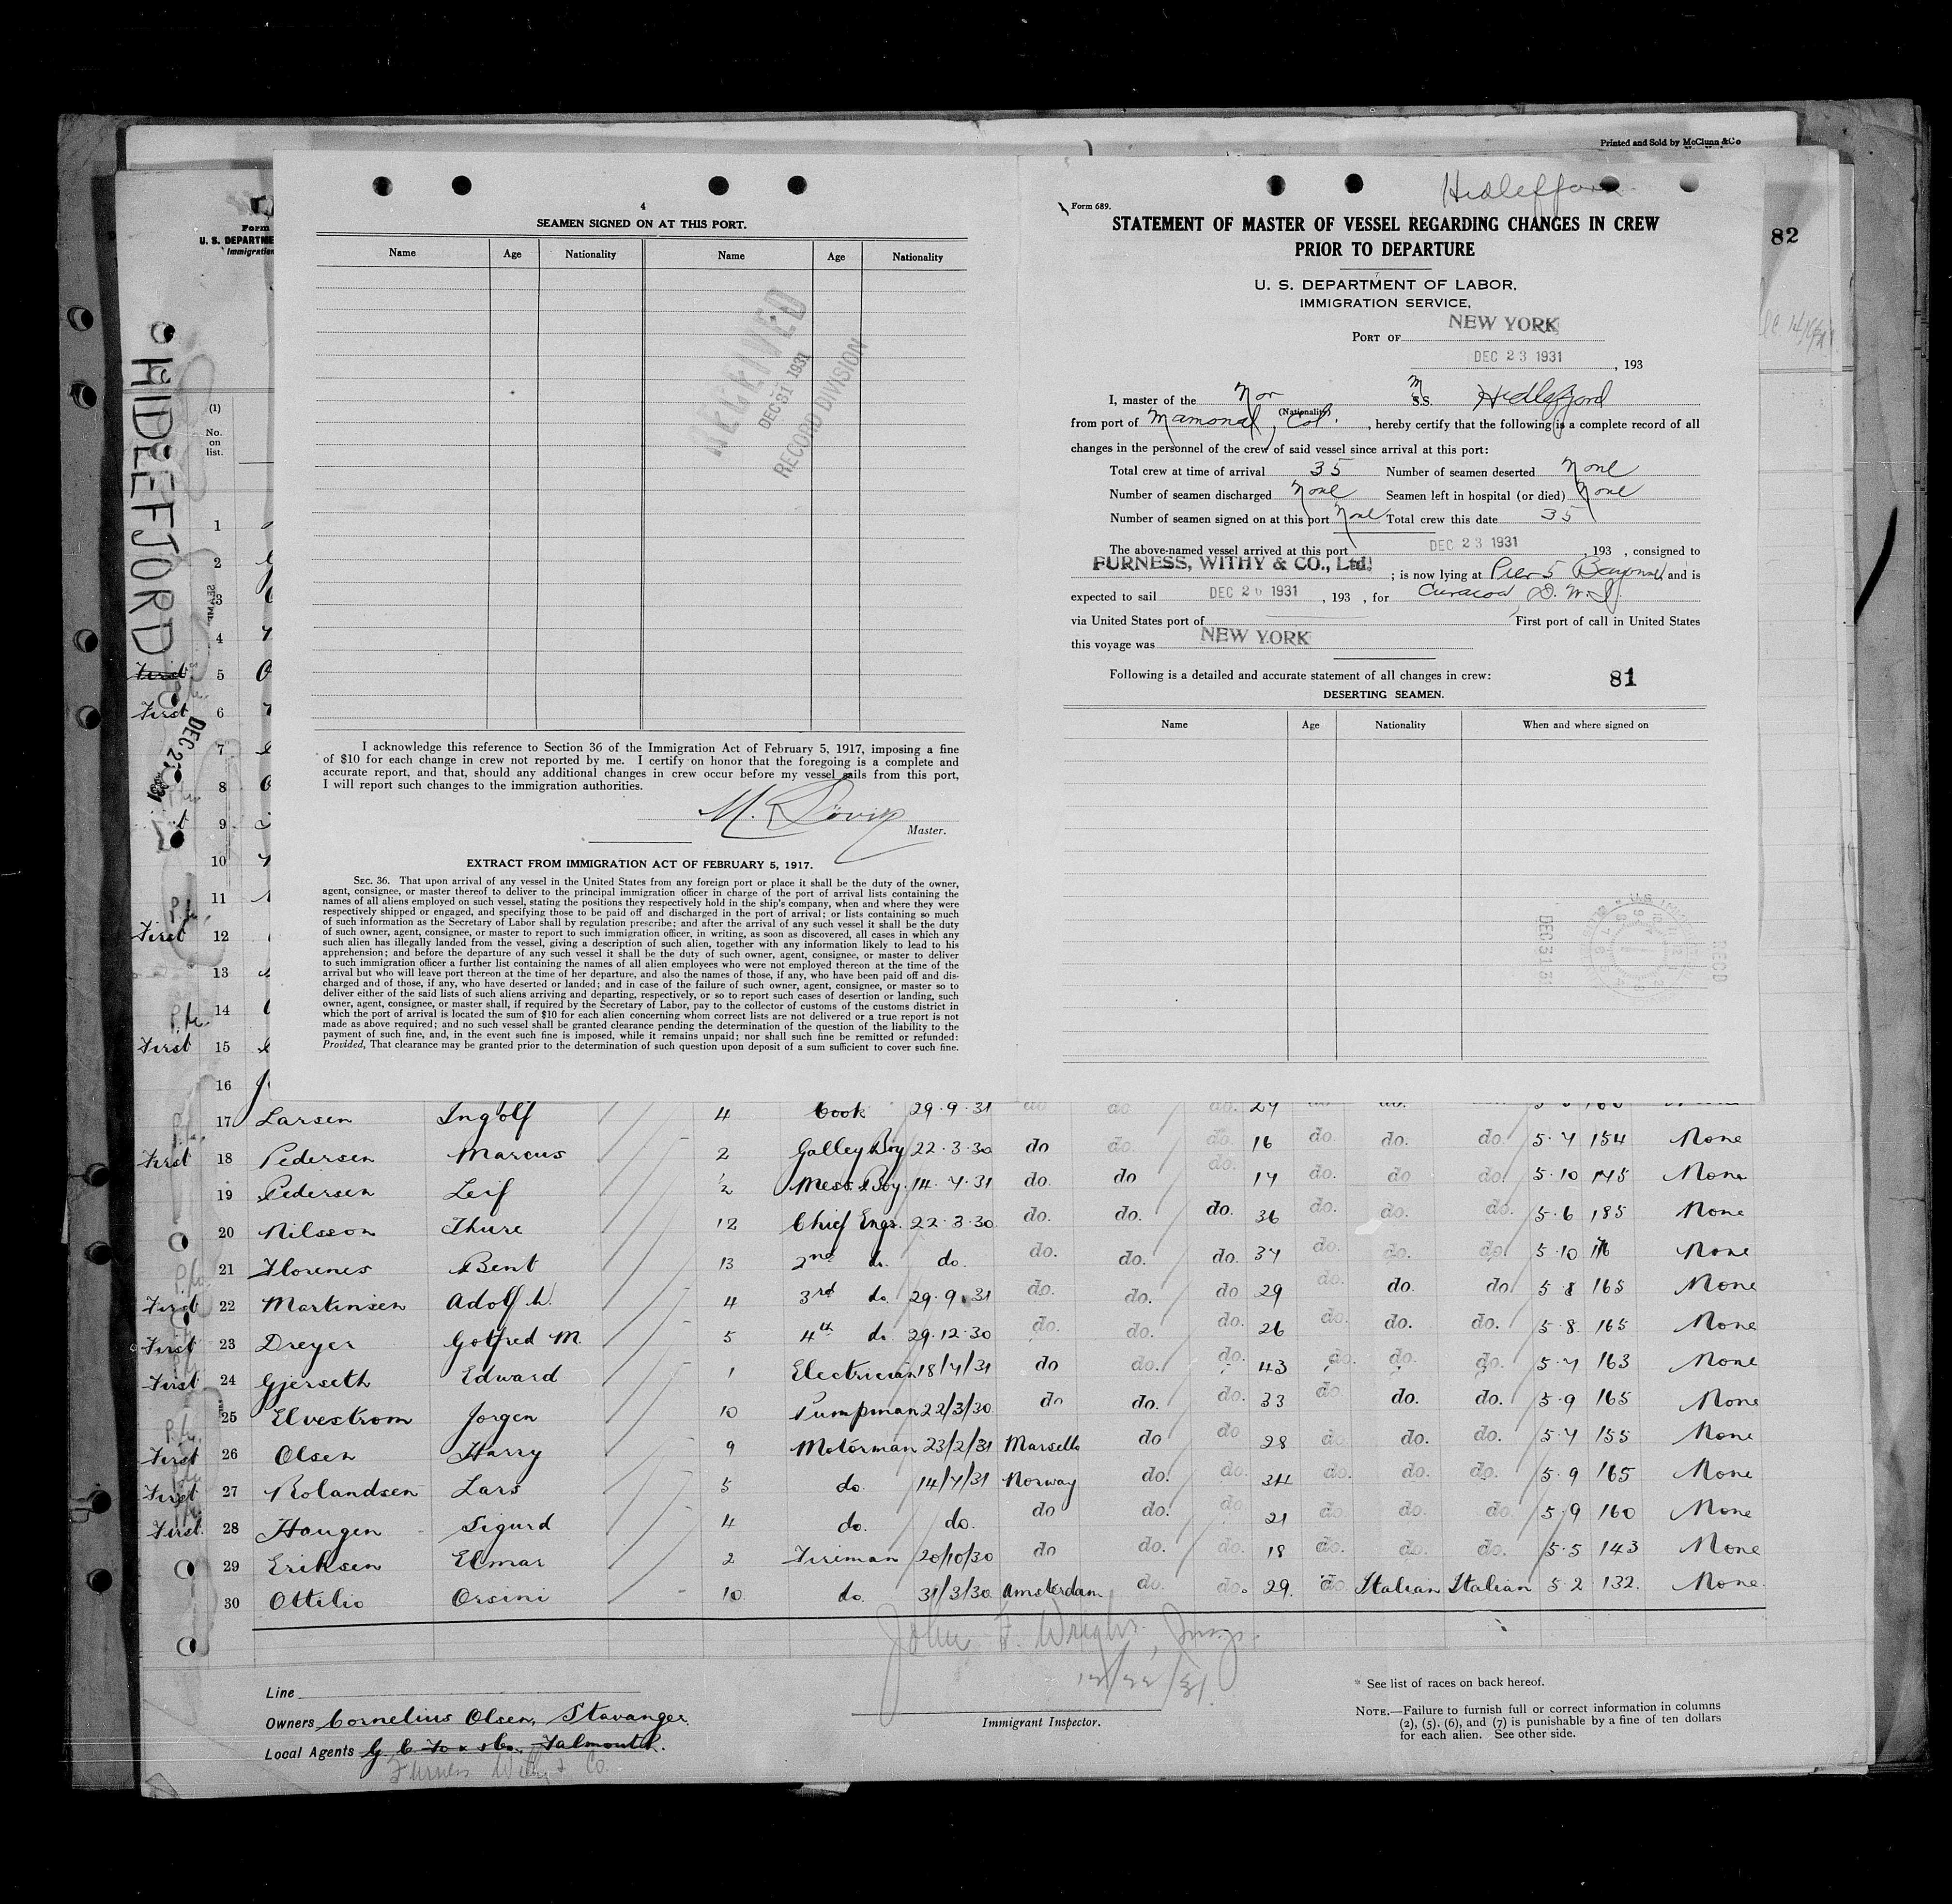 Printed and Sold by McClunn & Co
4
SEAMEN SIGNED ON AT THIS PORT.
Name Age Nationality Name Age Nationality
RECEIVED
DEC 31 1931
RECORD DIVISION
I acknowledge this reference to Section 36 of the Immigration Act of February 5, 1917, imposing a fine
of $10 for each change in crew not reported by me. I certify on honor that the foregoing is a complete and
accurate report, and that, should any additional changes in crew occur before my vessel sails from this port,
I will report such changes to the immigration authorities.
Master.
EXTRACT FROM IMMIGRATION ACT OF FEBRUARY 5, 1917.
SEC. 36. That upon arrival of any vessel in the United States from any foreign port or place it shall be the duty of the owner,
agent, consignee, or master thereof to deliver to the principal immigration officer in charge of the port of arrival lists containing the
names of all aliens employed on such vessel, stating the positions they respectively hold in the ship's company, when and where they were
respectively shipped or engaged, and specifying those to be paid off and discharged in the port of arrival; or lists containing so much
of such information as the Secretary of Labor shall by regulation prescribe; and after the arrival of any such vessel it shall be the duty
of such owner, agent, consignee, or master to report to such immigration officer, in writing, as soon as discovered, all cases in which any
such alien has illegally landed from the vessel, giving a description of such alien, together with any information likely to lead to his
apprehension; and before the departure of any such vessel it shall be the duty of such owner, agent, consignee, or master to deliver
to such immigration officer a further list containing the names of all alien employees who were not employed thereon at the time of the
arrival but who will leave port thereon at the time of her departure, and also the names of those, if any, who have been paid off and dis-
charged and of those, if any, who have deserted or landed; and in case of the failure of such owner, agent, consignee, or master so to
deliver either of the said lists of such aliens arriving and departing, respectively, or so to report such cases of desertion or landing, such
owner, agent, consignee, or master shall, if required by the Secretary of Labor, pay to the collector of customs of the customs district in
which the port of arrival is located the sum of $10 for each alien concerning whom correct lists are not delivered or a true report is not
made as above required; and no such vessel shall be granted clearance pending the determination of the question of the liability to the
payment of such fine, and, in the event such fine is imposed, while it remains unpaid; nor shall such fine be remitted or refunded:
Provided, That clearance may be granted prior to the determination of such question upon deposit of a sum sufficient to cover such fine.
Hidlefjord
Form 689.
STATEMENT OF MASTER OF VESSEL REGARDING CHANGES IN CREW
PRIOR TO DEPARTURE
82
U. S. DEPARTMENT OF LABOR,
IMMIGRATION SERVICE,
PORT OF NEW YORK
DEC 23 1931, 193
I, master of the Nor M S.S. Hidlefjord
(Nationality)
from port of Mamonal, Col., hereby certify that the following is a complete record of all
changes in the personnel of the crew of said vessel since arrival at this port:
Total crew at time of arrival 35 Number of seamen deserted None
Number of seamen discharged None Seamen left in hospital (or died) None
Number of seamen signed on at this port None Total crew this date 35
The above-named vessel arrived at this port DEC 23 1931, 193 , consigned to
FURNESS, WITHY & CO., Ltd. ; is now lying at Pier 5 Bayonne, and is
expected to sail DEC 26 1931, 193 , for Curacoa D. W. I.
via United States port of First port of call in United States
this voyage was NEW YORK
Following is a detailed and accurate statement of all changes in crew:
81
DESERTING SEAMEN.
Name Age Nationality When and where signed on
DEC 31 31
REC'D
Form
U. S. DEPARTME
Immigration
HIDLEFJORD
(1)
No.
on
list.
1
2
3
4
First 5
First 6
7
8
9
10
11
First 12
13
14
First 15
16
17 Larsen Ingolf 4 Cook 29.9.31 do do do. 27 do. do. None
First 18 Pedersen Marcus 2 Galley Boy 22.3.30 do do. do. 16 do. do. do. 5.7 154 None
19 Pedersen Leif 2 Mess Boy. 14.7.31 do. do do. 17 do. do do. 5.10 145 None
20 Nilsson Thure 12 Chief Engr. 22.3.30 do. do. do. 36 do. do. do. 5.6 185 None
21 Florenes Bent 13 2nd do. do. do. do. do. 37 do. do. do. 5.10 None
First 22 Martinsen Adolf W. 4 3rd do. 29.9.31 do. do. do. 29 do. do. do 5 8 165 None
First 23 Dreyer Gotfred M. 5 4th do. 29.12.30 do. do. do. 26 do. do. do. 5 8 165 None
First 24 Gjerseth Edward 1 Electrician 18/7/31 do do. do. 43 do. do. do. 5.7 163 None
25 Elvestrom Jorgen 10 Pumpman 22/3/30 do do. do. 33 do. do. do. 5.9 165 None
First 26 Olsen Harry 9 Motorman 23/2/31 Marsells do do 28 do do. do. 5.7 155 None
First 27 Rolandsen Lars 5 do. 14/7/31 Norway do. do. 34 do. do. do. 5.9 165 None
First. 28 Haugen Sigurd 4 do. do. do do. do. 21 do. do. do. 5.9 160 None
29 Eriksen Elmar 2 Fireman 20/10/30 do do. do. 18 do. do. do. 5.5 143 None
30 Ottilio Orsini 10 do. 31/3/30 Amsterdam do. do. 29. do. Italian Italian 5 2 132. None.
John F. Wright, Insp.
12/22/31.
Immigrant Inspector.
Line
Owners Cornelius Olsen, Stavanger.
Local Agents G C Fox & Co., Falmouth.
Furness Withy & Co.
* See list of races on back hereof.
NOTE.—Failure to furnish full or correct information in columns
(2), (5), (6), and (7) is punishable by a fine of ten dollars
for each alien. See other side.